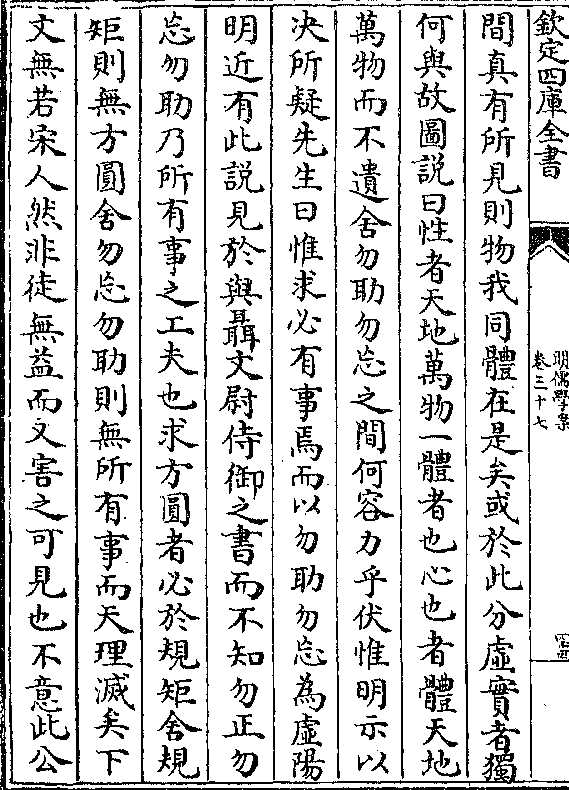 欽定四庫全書
明儒學案
卷三十七
間真有所見則物我同體在是矣或於此分虚實者獨
何與故圖説曰性者天地萬物一體者也心也者體天地
萬物而不遺舍勿助勿忘之間何容力乎伏惟明示以
决所疑先生曰惟求必有事焉而以勿助勿忘為虚陽
明近有此説見於與聶文尉侍御之書而不知勿正勿
忘勿助乃所有事之工夫也求方圓者必於規矩舍規
矩則無方圓舍勿忘勿助則無所有事而天理滅矣下
文無若宋人然非徒無益而又害之可見也不意此公